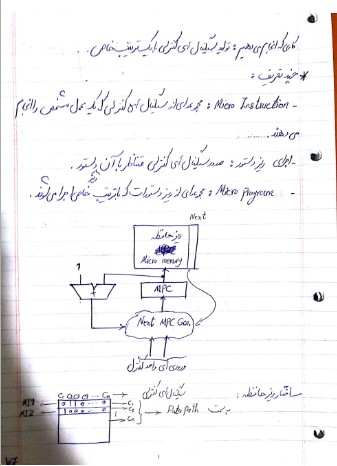 کاری که انجام می دهیم : تولید سیگنال های کنترلی با یک ترتیب خاص .
* چند تعریف :
- Micro Instruction : مجموعه ای از سیگنال های کنترلی که یک عمل مشخص را انجام
می دهند .......
- اجرای ریز دستور : صدور سیگنال های کنترلی متناظر با آن ریز دستور .
- Micro Program : مجموعه ای از ریز دستورات که با ترتیب خاصی اجرا می شوند .
Next
ریز حافظه
Micro memory
1
+
MPC
Next MPC Gen.
ورودی های واحد کنترل
ساختار ریز حافظه :
سیگنال های کنترلی
MI1
MI2
C1
C2
Cn
به سمت Data path